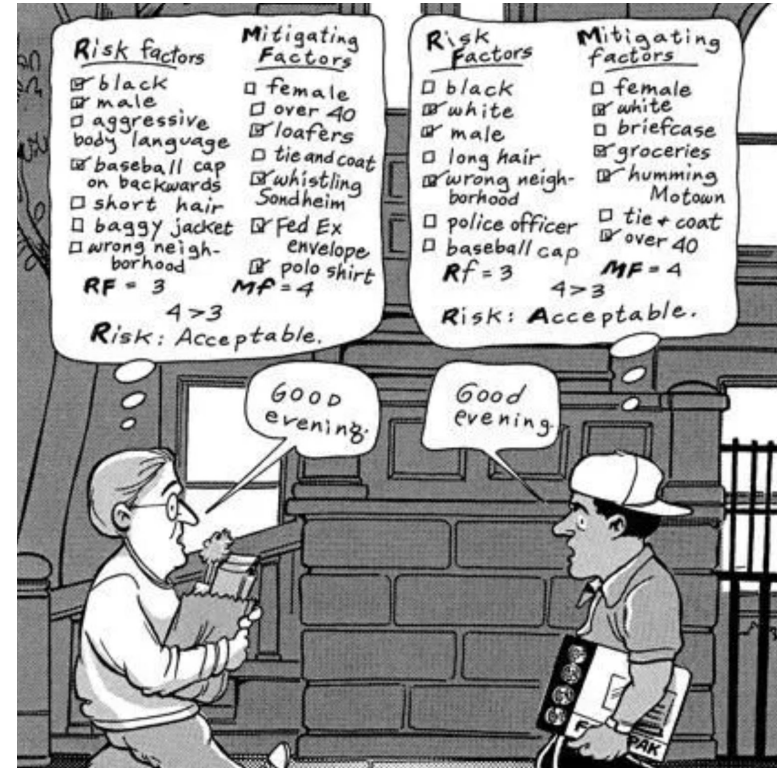 Risk factors
☑ black
☑ male
☐ aggressive
body language
☑ baseball cap
on backwards
☐ short hair
☐ baggy jacket
☐ wrong neigh-
borhood
RF = 3
Mitigating
Factors
☐ female
☐ over 40
☑ loafers
☐ tie and coat
☑ whistling
Sondheim
☑ Fed Ex
envelope
☑ polo shirt
MF = 4
4>3
Risk: Acceptable.
Risk
Factors
☐ black
☑ white
☑ male
☐ long hair
☑ wrong neigh-
borhood
☐ police officer
☐ baseball cap
Rf = 3
Mitigating
factors
☐ female
☑ white
☐ briefcase
☑ groceries
☑ humming
Motown
☐ tie + coat
☑ over 40
MF = 4
4>3
Risk: Acceptable.
GOOD
evening.
Good
evening.
PAK